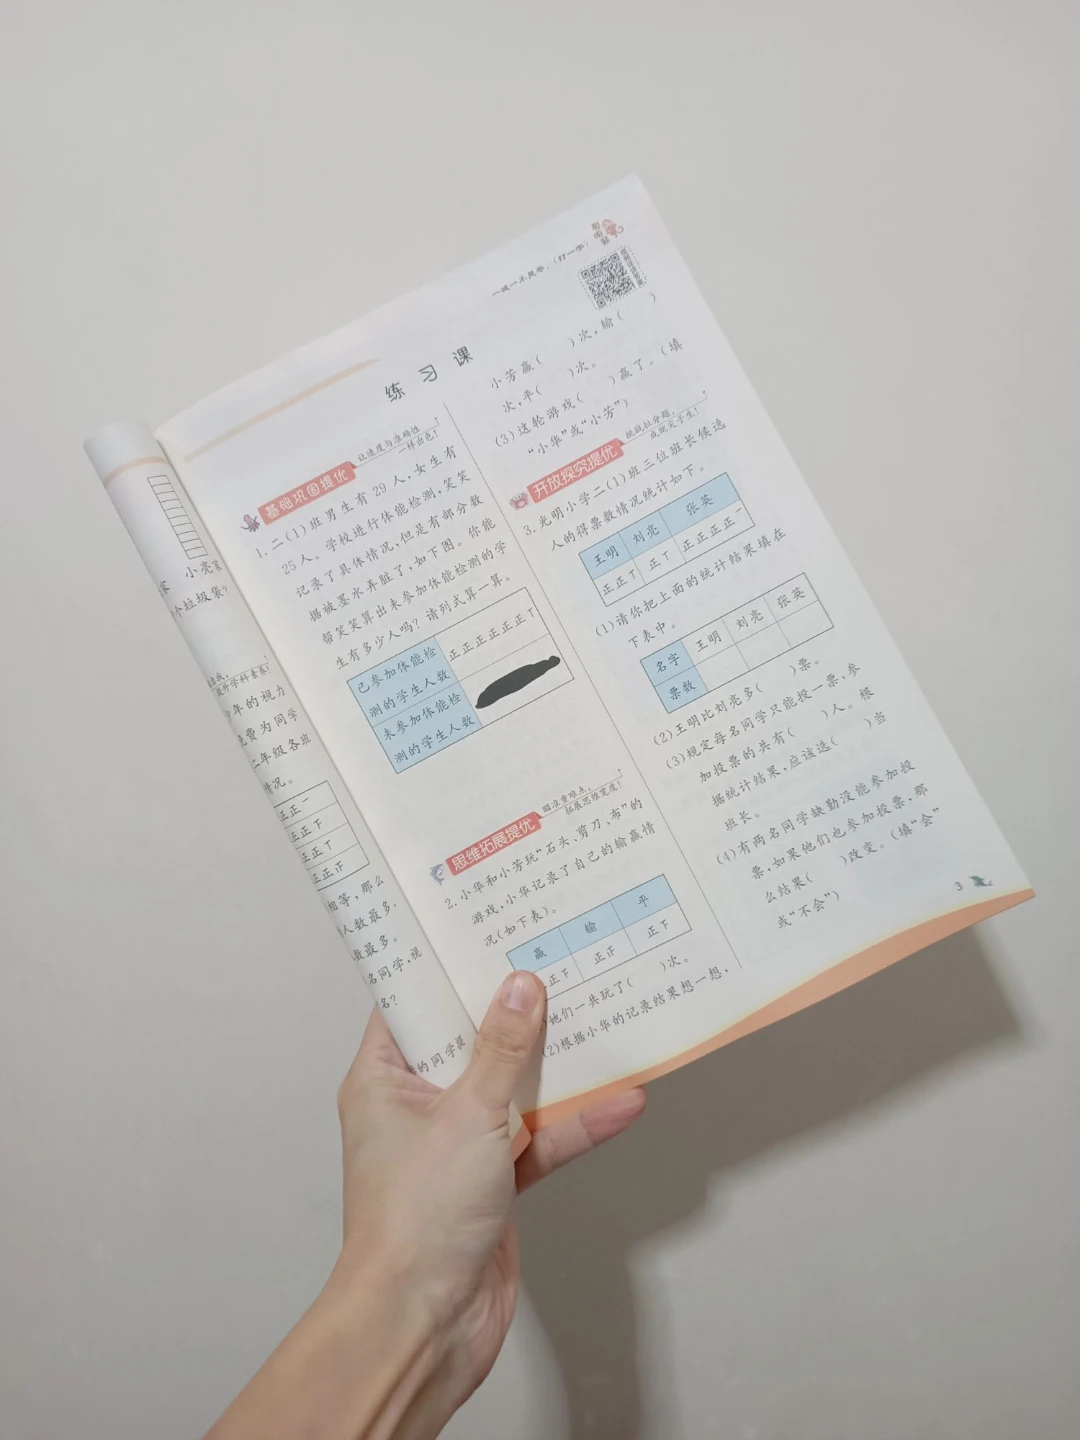 一减一不是零。(打一字)
练习课
让速度与准确性
一样出色!
基础巩固提优
1.二(1)班男生有29人,女生有
25人。学校进行体能检测,笑笑
记录了具体情况,但是有部分数
据被墨水弄脏了,如下图。你能
帮笑笑算出未参加体能检测的学
生有多少人吗?请列式算一算。
已参加体能检
测的学生人数
正正正正正正丅
未参加体能检
测的学生人数
瞄准重难点,
拓展思维宽度!
思维拓展提优
2.小华和小芳玩“石头、剪刀、布”的
游戏,小华记录了自己的输赢情
况(如下表)。
赢 输 平
正下 正 正下
她们一共玩了( )次。
(2)根据小华的记录结果想一想,
小芳赢( )次,输( )
次,平( )次。
(3)这轮游戏( )赢了。(填
“小华”或“小芳”)
挑战拉分题,
成就尖子生!
开放探究提优
3.光明小学二(1)班三位班长候选
人的得票数情况统计如下。
王明 刘亮 张英
正正丅 正丅 正正正正一
(1)请你把上面的统计结果填在
下表中。
名字 王明 刘亮 张英
票数
(2)王明比刘亮多( )票。
(3)规定每名同学只能投一票,参
加投票的共有( )人。根
据统计结果,应该选( )当
班长。
(4)有两名同学缺勤没能参加投
票,如果他们也参加投票,那
么结果( )改变。(填“会”
或“不会”)
3
小亮家
个垃圾袋?
提升学科素养!
年的视力
免费为同学
二年级各班
情况。
正正一
正正下
正正丅
正正
相等,那么
人数最多,
数最多。
名同学,视
名?
的同学提